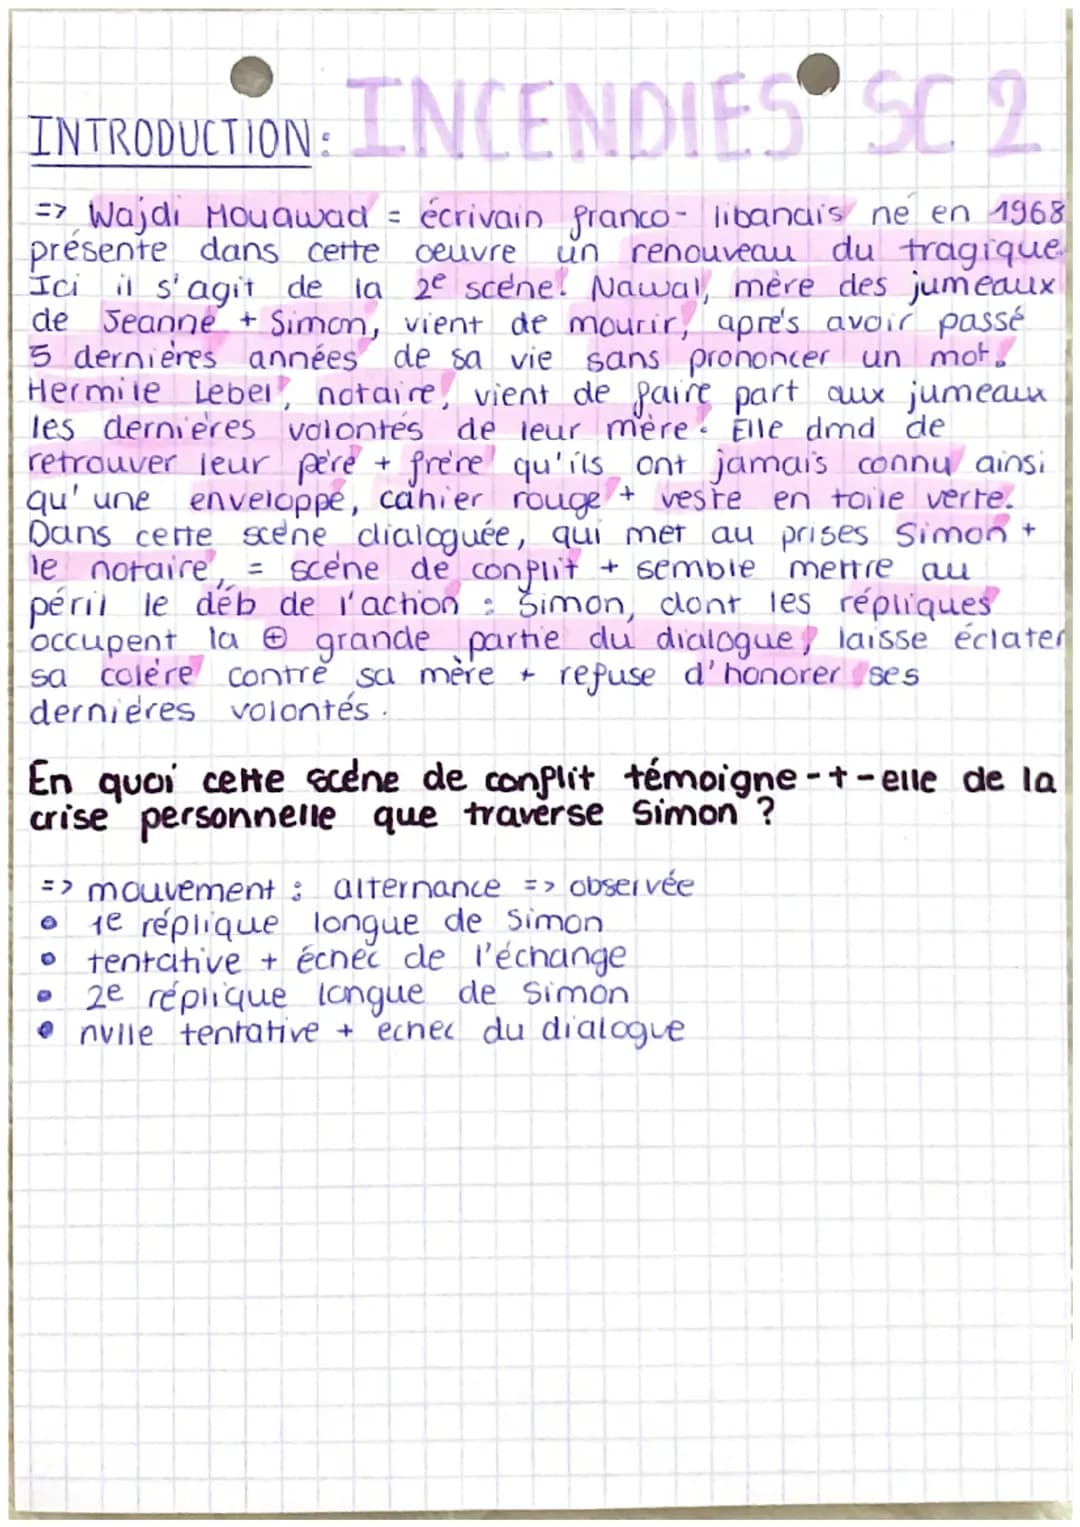 INCENDIES SC 2
INTRODUCTION:
=> Wajdi Mouawad = écrivain franco-libanais né en 1968
présente dans cette oeuvre un renouveau du tragique.
Ici il s'agit de la 2e scène. Nawal, mère des jumeaux
de Jeanne + Simon, vient de mourir, après avoir passé
5 dernières années de sa vie sans prononcer un mot.
Hermile Lebel, notaire, vient de faire part aux jumeaux
les dernières volontés de leur mère. Elle dmd de
retrouver leur père + frère qu'ils ont jamais connu ainsi
qu'une enveloppe, cahier rouge + veste en toile verte.
Dans cette scène dialoguée, qui met au prises Simon +
le notaire, = scène de conflit + semble mettre au
péril le déb de l'action : Simon, dont les répliques
occupent la ⊕ grande partie du dialogue, laisse éclater
sa colère contre sa mère + refuse d'honorer ses
dernières volontés.
En quoi cette scène de conflit témoigne-t-elle de la
crise personnelle que traverse Simon ?
=> mouvement : alternance => observée
• 1e réplique longue de Simon
• tentative + échec de l'échange
• 2e réplique longue de Simon
• nvlle tentative + echec du dialogue